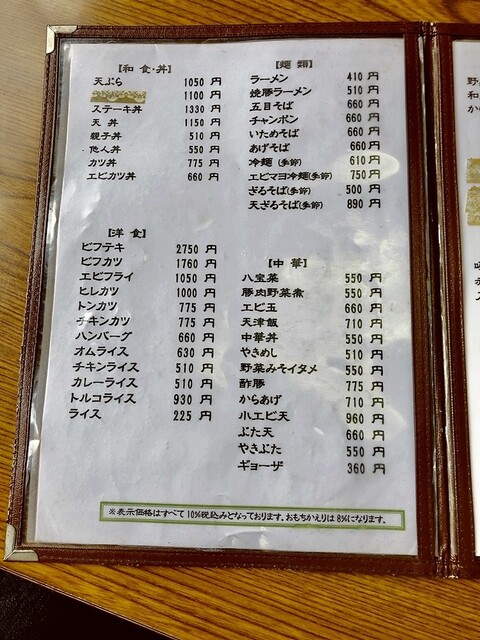 【和食・丼】
天ぷら 1050 円
1100 円
ステーキ丼 1330 円
天丼 1150 円
親子丼 510 円
他人丼 550 円
カツ丼 775 円
エビカツ丼 660 円
【洋食】
ビフテキ 2750 円
ビフカツ 1760 円
エビフライ 1050 円
ヒレカツ 1000 円
トンカツ 775 円
チキンカツ 775 円
ハンバーグ 660 円
オムライス 630 円
チキンライス 510 円
カレーライス 510 円
トルコライス 930 円
ライス 225 円
【麺類】
ラーメン 410 円
焼豚ラーメン 510 円
五目そば 660 円
チャンポン 660 円
いためそば 660 円
あげそば 660 円
冷麺(冬節) 610 円
エビマヨ冷麺(冬節) 750 円
ざるそば(冬節) 500 円
天ざるそば(冬節) 890 円
【中華】
八宝菜 550 円
豚肉野菜煮 550 円
エビ玉 660 円
天津飯 710 円
中華丼 550 円
やきめし 510 円
野菜みそイタメ 550 円
酢豚 775 円
からあげ 710 円
小エビ天 960 円
ぶた天 660 円
やきぶた 550 円
ギョーザ 360 円
※表示価格はすべて10%税込みとなっております。おもちかえりは8%になります。